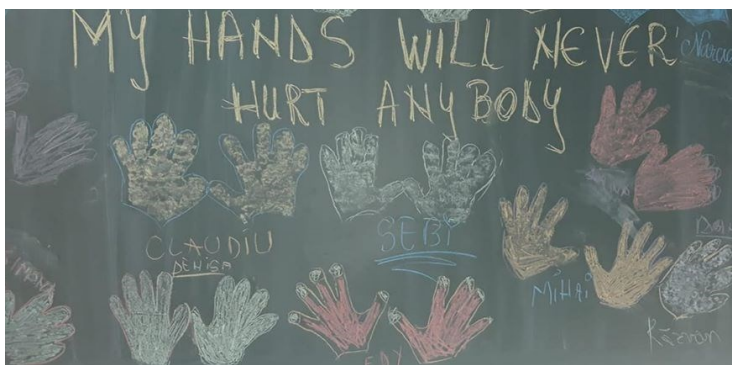 MY HANDS WILL NEVER
HURT ANYBODY
CLAUDIU
DENISA
SEBI
MIHAI
Răzvan